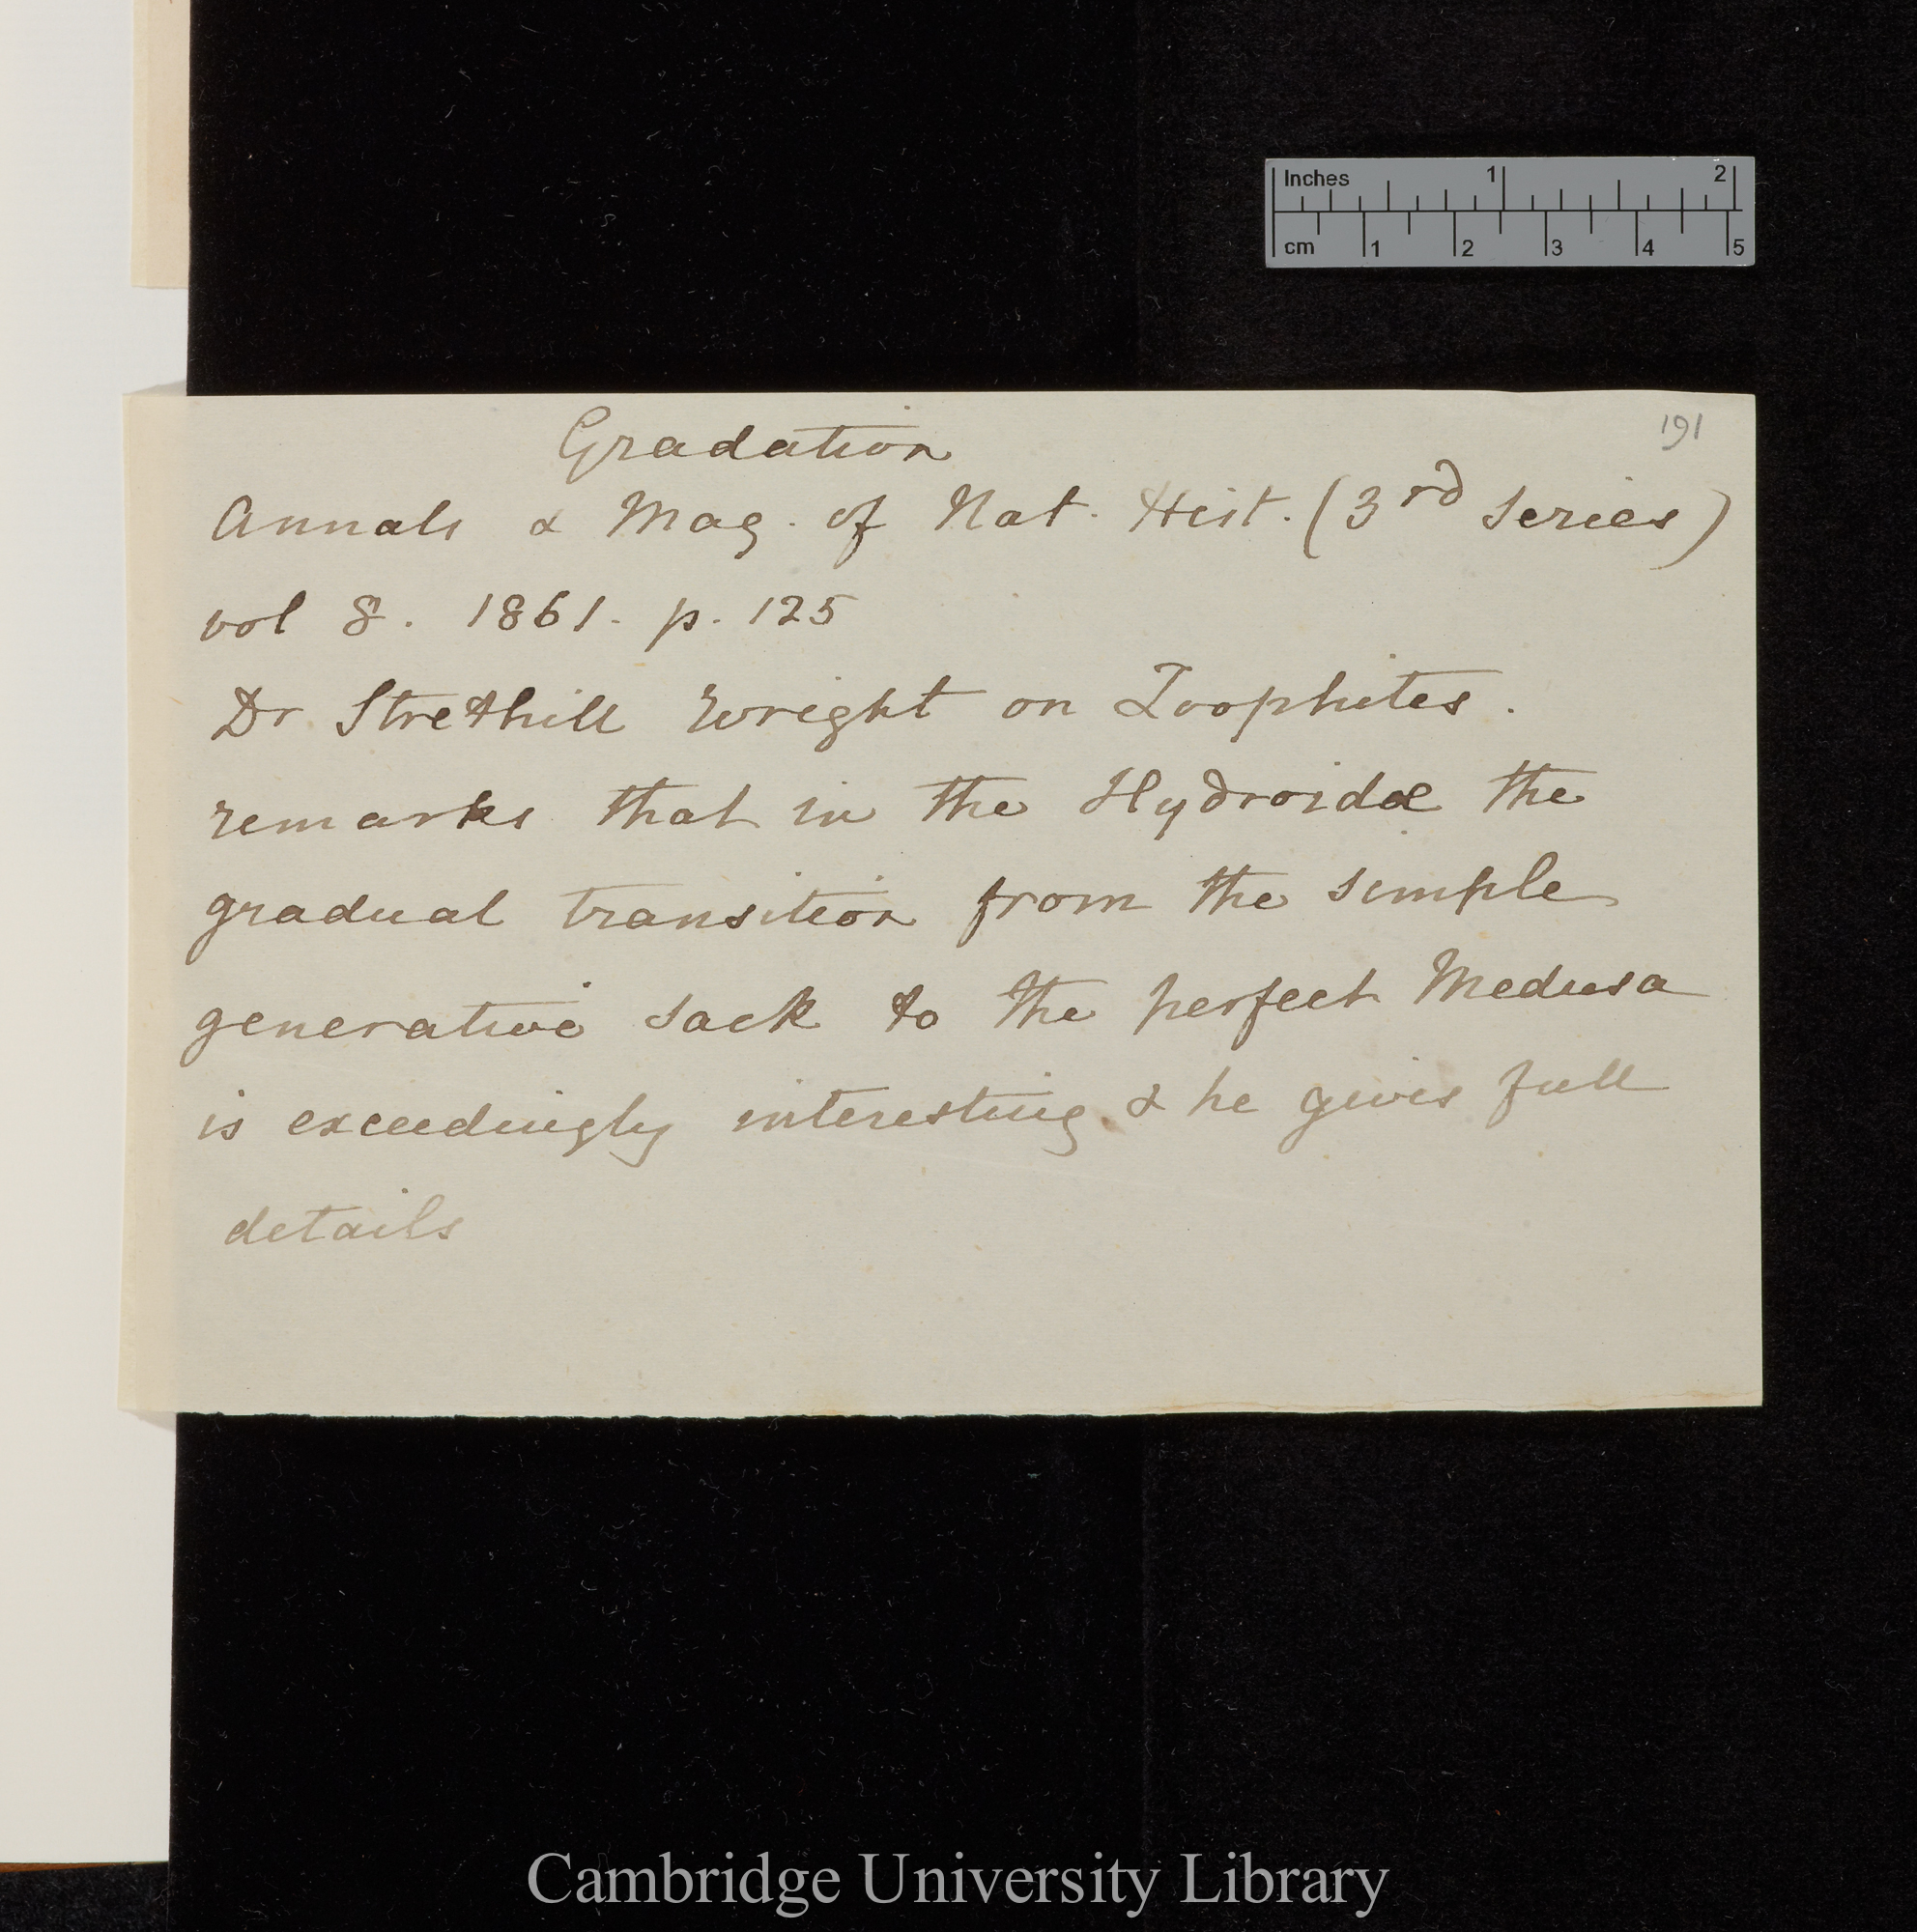 Inches 1 2
cm 1 2 3 4 5
191
Gradation
Annals & Mag. of Nat. Hist. (3rd series)
vol 8. 1861. p. 125
Dr Strethill Wright on Zoophites.
remarks that in the Hydroidæ the
gradual transition from the simple
generative sack to the perfect Medusa
is exceedingly interesting & he gives full
details
Cambridge University Library